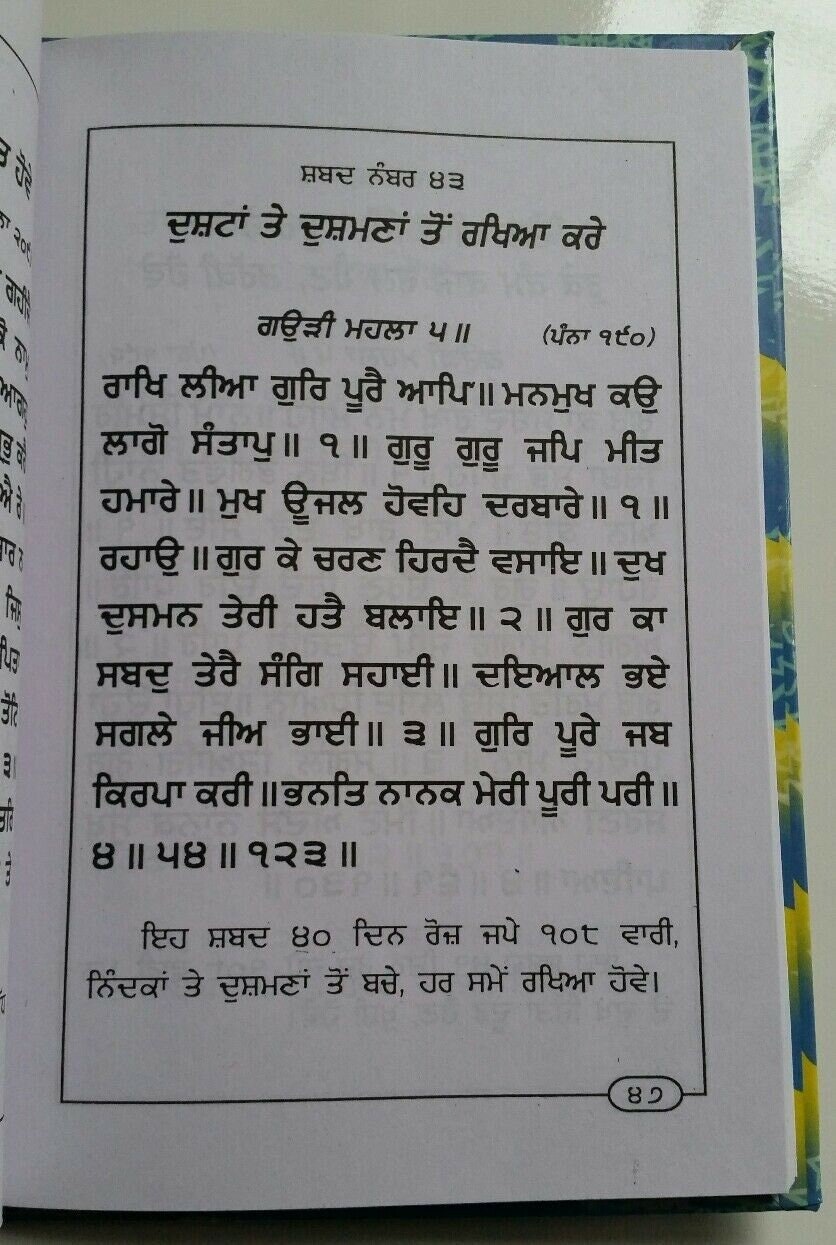 ਸ਼ਬਦ ਨੰਬਰ ੪੩
ਦੁਸ਼ਟਾਂ ਤੇ ਦੁਸ਼ਮਣਾਂ ਤੋਂ ਰਖਿਆ ਕਰੇ
ਗਉੜੀ ਮਹਲਾ ੫॥ (ਪੰਨਾ ੧੯੦)
ਰਾਖਿ ਲੀਆ ਗੁਰਿ ਪੂਰੈ ਆਪਿ॥ ਮਨਮੁਖ ਕਉ
ਲਾਗੋ ਸੰਤਾਪੁ॥ ੧॥ ਗੁਰੂ ਗੁਰੂ ਜਪਿ ਮੀਤ
ਹਮਾਰੇ॥ ਮੁਖ ਊਜਲ ਹੋਵਹਿ ਦਰਬਾਰੇ॥ ੧॥
ਰਹਾਉ॥ ਗੁਰ ਕੇ ਚਰਣ ਹਿਰਦੈ ਵਸਾਇ॥ ਦੁਖ
ਦੁਸਮਨ ਤੇਰੀ ਹਤੈ ਬਲਾਇ॥ ੨॥ ਗੁਰ ਕਾ
ਸਬਦੁ ਤੇਰੈ ਸੰਗਿ ਸਹਾਈ॥ ਦਇਆਲ ਭਏ
ਸਗਲੇ ਜੀਅ ਭਾਈ॥ ੩॥ ਗੁਰਿ ਪੂਰੇ ਜਬ
ਕਿਰਪਾ ਕਰੀ॥ ਭਨਤਿ ਨਾਨਕ ਮੇਰੀ ਪੂਰੀ ਪਰੀ॥
੪॥ ੫੪॥ ੧੨੩॥
ਇਹ ਸ਼ਬਦ ੪੦ ਦਿਨ ਰੋਜ਼ ਜਪੇ ੧੦੮ ਵਾਰੀ,
ਨਿੰਦਕਾਂ ਤੇ ਦੁਸ਼ਮਣਾਂ ਤੋਂ ਬਚੇ, ਹਰ ਸਮੇਂ ਰਖਿਆ ਹੋਵੇ।
੪੭